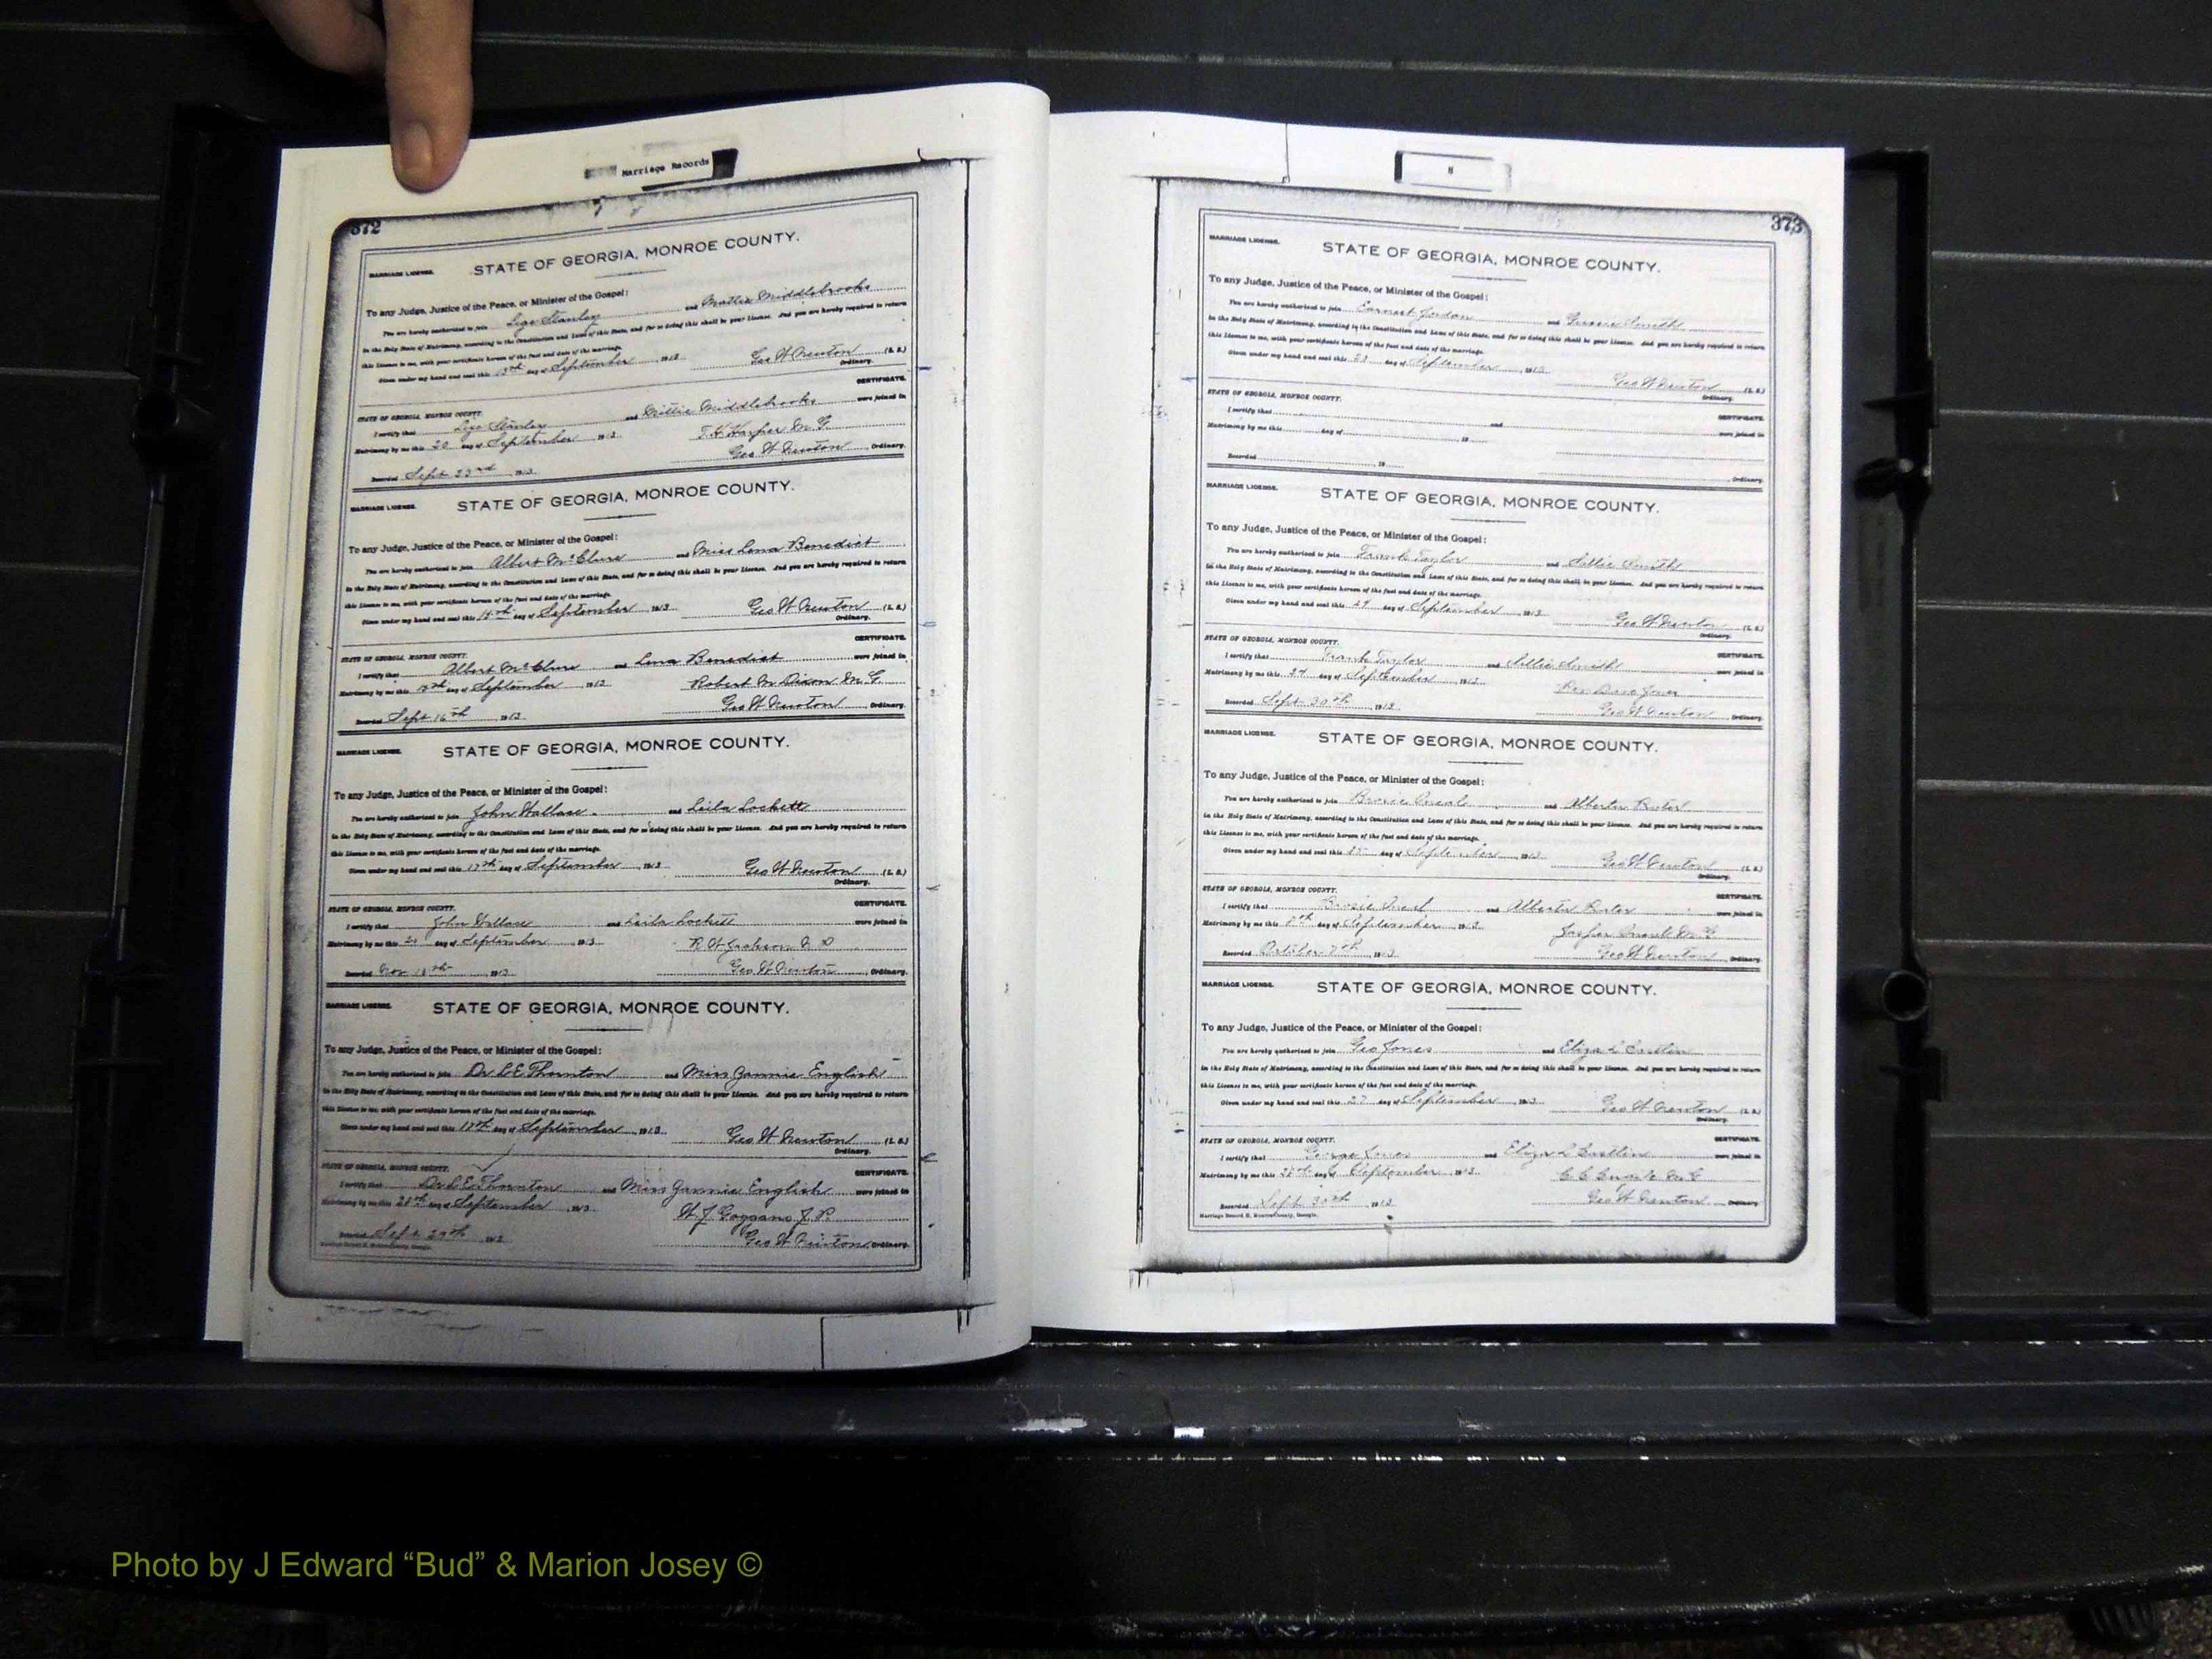 Marriage Records
372
MARRIAGE LICENSE. STATE OF GEORGIA, MONROE COUNTY.
To any Judge, Justice of the Peace, or Minister of the Gospel:
You are hereby authorized to join Lige Stanley and Mattie Middlebrooks
in the Holy State of Matrimony, according to the Constitution and Laws of this State, and for so doing this shall be your License. And you are hereby required to return
this License to me, with your certificate hereon of the fact and date of the marriage.
Given under my hand and seal this 13th day of September, 1913 Geo W Newton (L. S.)
Ordinary.
CERTIFICATE.
STATE OF GEORGIA, MONROE COUNTY.
I certify that Lige Stanley and Mittie Middlebrooks were joined in
Matrimony by me this 20 day of September 1913 T. H. Harper M. G
Geo W Newton Ordinary.
Recorded Sept 23rd 1913
MARRIAGE LICENSE. STATE OF GEORGIA, MONROE COUNTY.
To any Judge, Justice of the Peace, or Minister of the Gospel:
You are hereby authorized to join Albert McClure and Miss Lena Benedict
in the Holy State of Matrimony, according to the Constitution and Laws of this State, and for so doing this shall be your License. And you are hereby required to return
this License to me, with your certificate hereon of the fact and date of the marriage.
Given under my hand and seal this day of September, 1913 Geo W Newton (L. S.)
Ordinary.
CERTIFICATE.
STATE OF GEORGIA, MONROE COUNTY.
I certify that Albert McClure and Lena Benedict were joined in
Matrimony by me this day of September, 1913 Robert M Dixon M. G.
Geo W Newton Ordinary.
Recorded Sept 16th 1913
MARRIAGE LICENSE. STATE OF GEORGIA, MONROE COUNTY.
To any Judge, Justice of the Peace, or Minister of the Gospel:
You are hereby authorized to join John Wallace and Leila Lockett
in the Holy State of Matrimony, according to the Constitution and Laws of this State, and for so doing this shall be your License. And you are hereby required to return
this License to me, with your certificate hereon of the fact and date of the marriage.
Given under my hand and seal this 17th day of September, 1913 Geo W Newton (L. S.)
Ordinary.
CERTIFICATE.
STATE OF GEORGIA, MONROE COUNTY.
I certify that John Wallace and Leila Lockett were joined in
Matrimony by me this day of September 1913 R. W Jackson
Geo W Newton Ordinary.
Recorded Nov 1913
MARRIAGE LICENSE. STATE OF GEORGIA, MONROE COUNTY.
To any Judge, Justice of the Peace, or Minister of the Gospel:
You are hereby authorized to join Dr Thornton and Miss Jannie English
in the Holy State of Matrimony, according to the Constitution and Laws of this State, and for so doing this shall be your License. And you are hereby required to return
this License to me, with your certificate hereon of the fact and date of the marriage.
Given under my hand and seal this day of September, 1913 Geo W Newton (L. S.)
Ordinary.
CERTIFICATE.
STATE OF GEORGIA, MONROE COUNTY.
I certify that Dr Thornton and Miss Jannie English were joined in
Matrimony by me this 28th day of September 1913 W. J. Goggans J. P.
Geo W Newton Ordinary.
Recorded Sept 29th 1913
Marriage Record H, Monroe County, Georgia.
H
373
MARRIAGE LICENSE. STATE OF GEORGIA, MONROE COUNTY.
To any Judge, Justice of the Peace, or Minister of the Gospel:
You are hereby authorized to join Earnest Jordan and Gussie Smith
in the Holy State of Matrimony, according to the Constitution and Laws of this State, and for so doing this shall be your License. And you are hereby required to return
this License to me, with your certificate hereon of the fact and date of the marriage.
Given under my hand and seal this 23 day of September, 1913 Geo W Newton (L. S.)
Ordinary.
STATE OF GEORGIA, MONROE COUNTY. CERTIFICATE.
I certify that and were joined in
Matrimony by me this day of 19
Recorded 19 Ordinary.
MARRIAGE LICENSE. STATE OF GEORGIA, MONROE COUNTY.
To any Judge, Justice of the Peace, or Minister of the Gospel:
You are hereby authorized to join Frank Taylor and Sallie Smith
in the Holy State of Matrimony, according to the Constitution and Laws of this State, and for so doing this shall be your License. And you are hereby required to return
this License to me, with your certificate hereon of the fact and date of the marriage.
Given under my hand and seal this 24 day of September, 1913 Geo W Newton (L. S.)
Ordinary.
STATE OF GEORGIA, MONROE COUNTY. CERTIFICATE.
I certify that Frank Taylor and Sallie Smith were joined in
Matrimony by me this 24 day of September, 1913 Rev Jones
Recorded Sept 30th 1913 Geo W Newton Ordinary.
MARRIAGE LICENSE. STATE OF GEORGIA, MONROE COUNTY.
To any Judge, Justice of the Peace, or Minister of the Gospel:
You are hereby authorized to join and Alberta
in the Holy State of Matrimony, according to the Constitution and Laws of this State, and for so doing this shall be your License. And you are hereby required to return
this License to me, with your certificate hereon of the fact and date of the marriage.
Given under my hand and seal this 25 day of September, 1913 Geo W Newton (L. S.)
Ordinary.
STATE OF GEORGIA, MONROE COUNTY. CERTIFICATE.
I certify that and Alberta were joined in
Matrimony by me this day of September, 1913 Jasper M. G
Recorded October 7th, 1913 Geo W Newton Ordinary.
MARRIAGE LICENSE. STATE OF GEORGIA, MONROE COUNTY.
To any Judge, Justice of the Peace, or Minister of the Gospel:
You are hereby authorized to join Geo Jones and Eliza
in the Holy State of Matrimony, according to the Constitution and Laws of this State, and for so doing this shall be your License. And you are hereby required to return
this License to me, with your certificate hereon of the fact and date of the marriage.
Given under my hand and seal this 27 day of September, 1913 Geo W Newton (L. S.)
Ordinary.
STATE OF GEORGIA, MONROE COUNTY. CERTIFICATE.
I certify that George Jones and Eliza were joined in
Matrimony by me this 28th day of September, 1913 M. G
Recorded Sept 30th 1913 Geo W Newton Ordinary.
Marriage Record H, Monroe County, Georgia.
Photo by J Edward “Bud” & Marion Josey ©